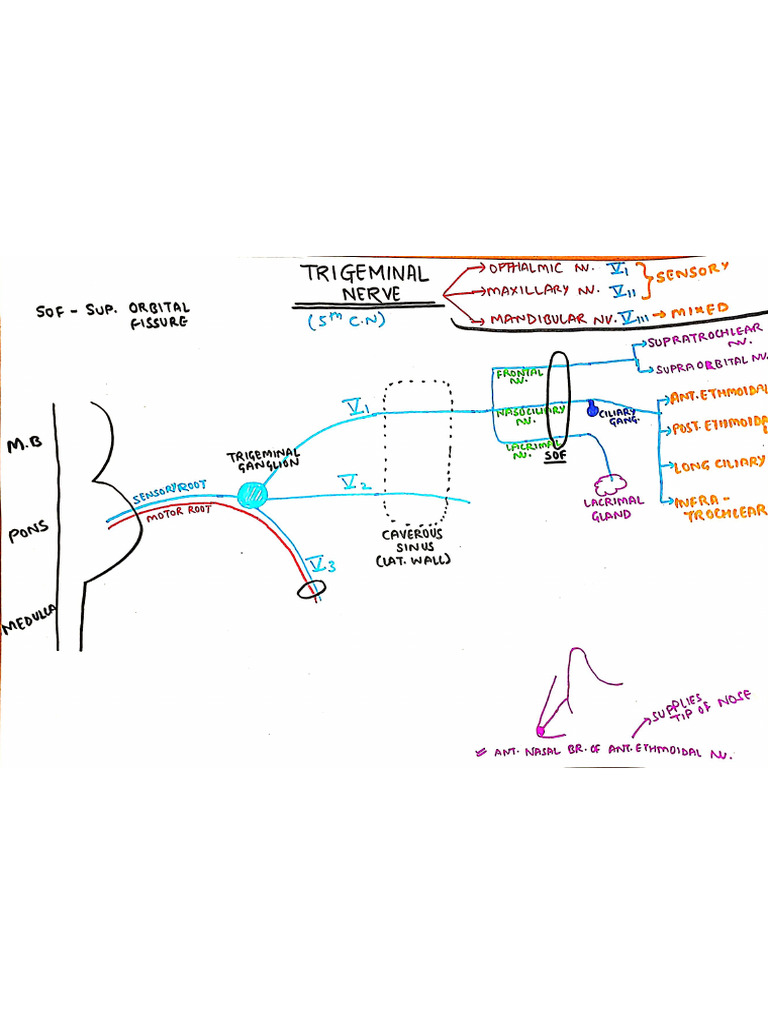 TRIGEMINAL
NERVE
(5th C.N)
OPTHALMIC NV. V1
MAXILLARY NV. VII
SENSORY
MANDIBULAR NV. VIII → MIXED
SOF - SUP. ORBITAL
FISSURE
SUPRATROCHLEAR
NV.
SUPRA ORBITAL NV
FRONTAL
NV.
V1
NASOCILIARY
NV.
CILIARY
GANG.
ANT. ETHMOIDAL
POST. ETHMOIDAL
LACRIMAL
NV.
SOF
LONG CILIARY
M.B
TRIGEMINAL
GANGLION
V2
LACRIMAL
GLAND
INFRA-
TROCHLEAR
SENSORY ROOT
MOTOR ROOT
PONS
CAVEROUS
SINUS
(LAT. WALL)
V3
MEDULLA
SUPPLIES
TIP OF NOSE
ANT. NASAL BR. OF ANT. ETHMOIDAL NV.